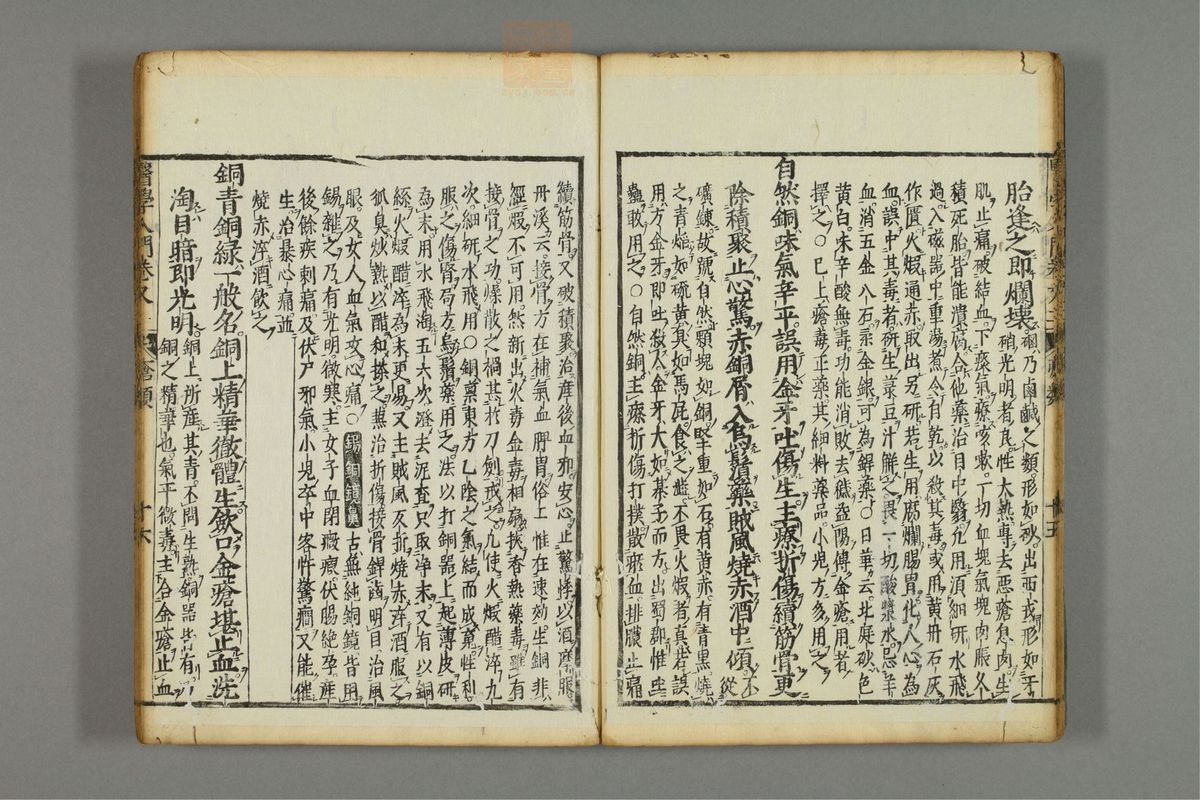 胎逢之即爛壞 硇乃鹵鹹之類形如砂出西戎形如牙
硝光明者良性大熱專去惡瘡息肉生
肌止痛破結血下痰氣療咳嗽一切血塊氣塊肉脹久
積死胎皆能潰腐合他藥治目中翳凡用須細研水飛
過入磁器中重湯煮令自乾以殺其毒或用黃丹石灰
作匱火煅通赤取出另研若生用腐爛腸胃化人心為
血誤中其毒者研生菉豆汁解之畏一切酸漿水忌羊
血消五金八石柔金銀可為銲藥○日華云北庭砂色
黃白味辛酸無毒功能消敗去穢益陽傅金瘡用者
擇之○已上瘡毒正藥其細料藥品小兒方多用之
自然銅味氣辛平誤用金牙吐傷生主療折傷續筋骨更
除積聚止心驚赤銅屑入烏鬚藥賊風燒赤酒中傾 不從
礦鍊故號自然顆塊如銅堅重如石有黃赤有青黑燒
之青焰如硫黃臭如馬屁食之澁不畏火煅者真若誤
用方金牙即吐殺人金牙大如棊子而方出蜀郡惟出
蠱敢用之○自然銅主療折傷打撲散瘀血排膿止痛
續筋骨又破積聚治產後血邪安心止驚悸以酒摩服
丹溪云接骨方在補氣血脾胃俗工惟在速効生銅非
經煅不可用然新出火毒金毒相扇挾香熱藥毒雖有
接骨之功燥散之禍甚於刀劍戒之凡使火煅醋淬九
次細研水飛用○銅稟東方乙陰之氣結而成魂性利
服之傷腎局方烏鬚藥用之法以打銅器上起薄皮研
為末用水飛淘五六次澄去泥查只取淨末又有以銅
絲火煅醋淬為末更易又主賊風反折燒赤淬酒服之
狐臭炒熱以醋和搽之兼治折傷接骨銲齒明目治風
眼及女人血氣攻心痛○錫銅鏡鼻 古無純銅鏡皆用
錫雜之乃有光明微寒主女子血閉癥瘕伏腸絕孕產
後餘疾刺痛及伏尸邪氣小兒卒中客忤驚癇又能催
生治暴心痛並
燒赤淬酒飲之
銅青銅綠一般名銅上精華徹體生斂口金瘡堪止血洗
淘目暗即光明 銅上所產其青不問生熟銅器皆有
銅之精華也氣平微毒主合金瘡止血